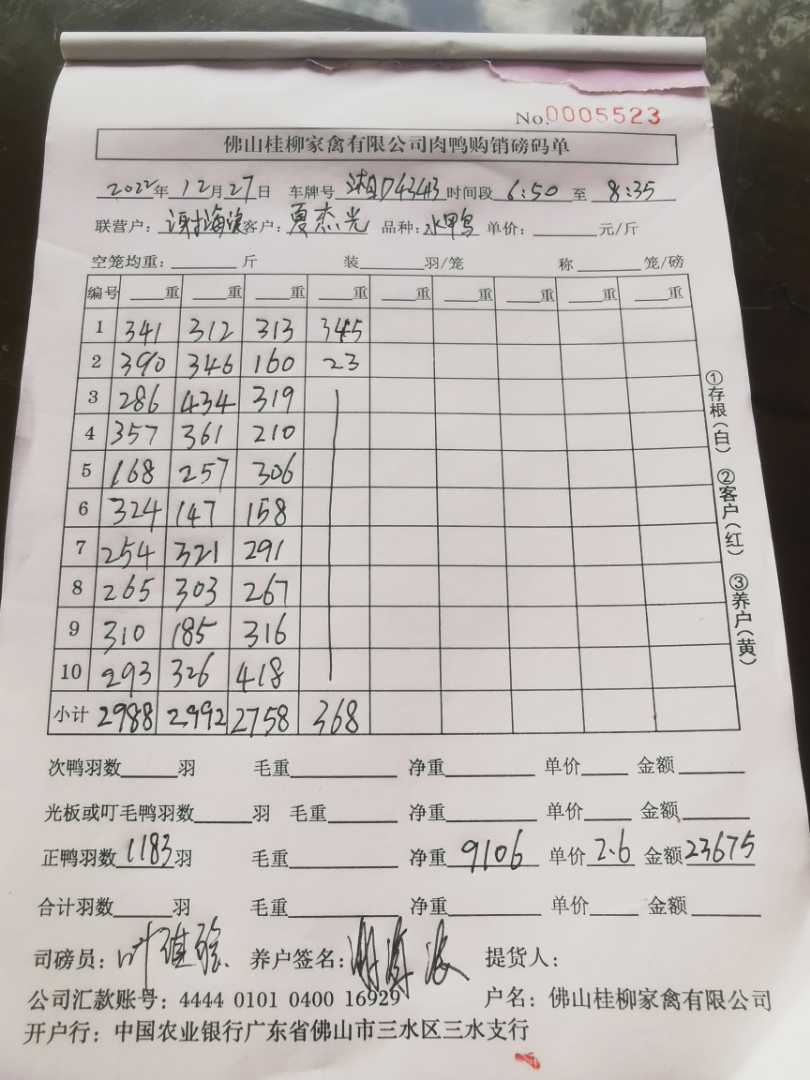 No.0005523
佛山桂柳家禽有限公司肉鸭购销磅码单
2022年12月27日 车牌号 湘D43413 时间段 6:50 至 8:35
联营户: 谢海波 客户: 夏杰光 品种: 水甲鸟 单价: 元/斤
空笼均重: 斤 装 羽/笼 称 笼/磅
编号 重 重 重 重 重 重 重 重
1 341 312 313 345
2 390 346 160 23
3 286 434 319
4 357 361 210
5 168 257 306
6 324 147 158
7 254 321 291
8 265 303 267
9 310 185 316
10 293 326 418
小计 2988 2992 2758 368
①存根(白) ②客户(红) ③养户(黄)
次鸭羽数 羽 毛重 净重 单价 金额
光板或叮毛鸭羽数 羽 毛重 净重 单价 金额
正鸭羽数 1183 羽 毛重 净重 9106 单价 2.6 金额 23675
合计羽数 羽 毛重 净重 单价 金额
司磅员: 叶 养户签名: 谢海波 提货人:
公司汇款账号: 4444 0101 0400 16929 户名: 佛山桂柳家禽有限公司
开户行: 中国农业银行广东省佛山市三水区三水支行